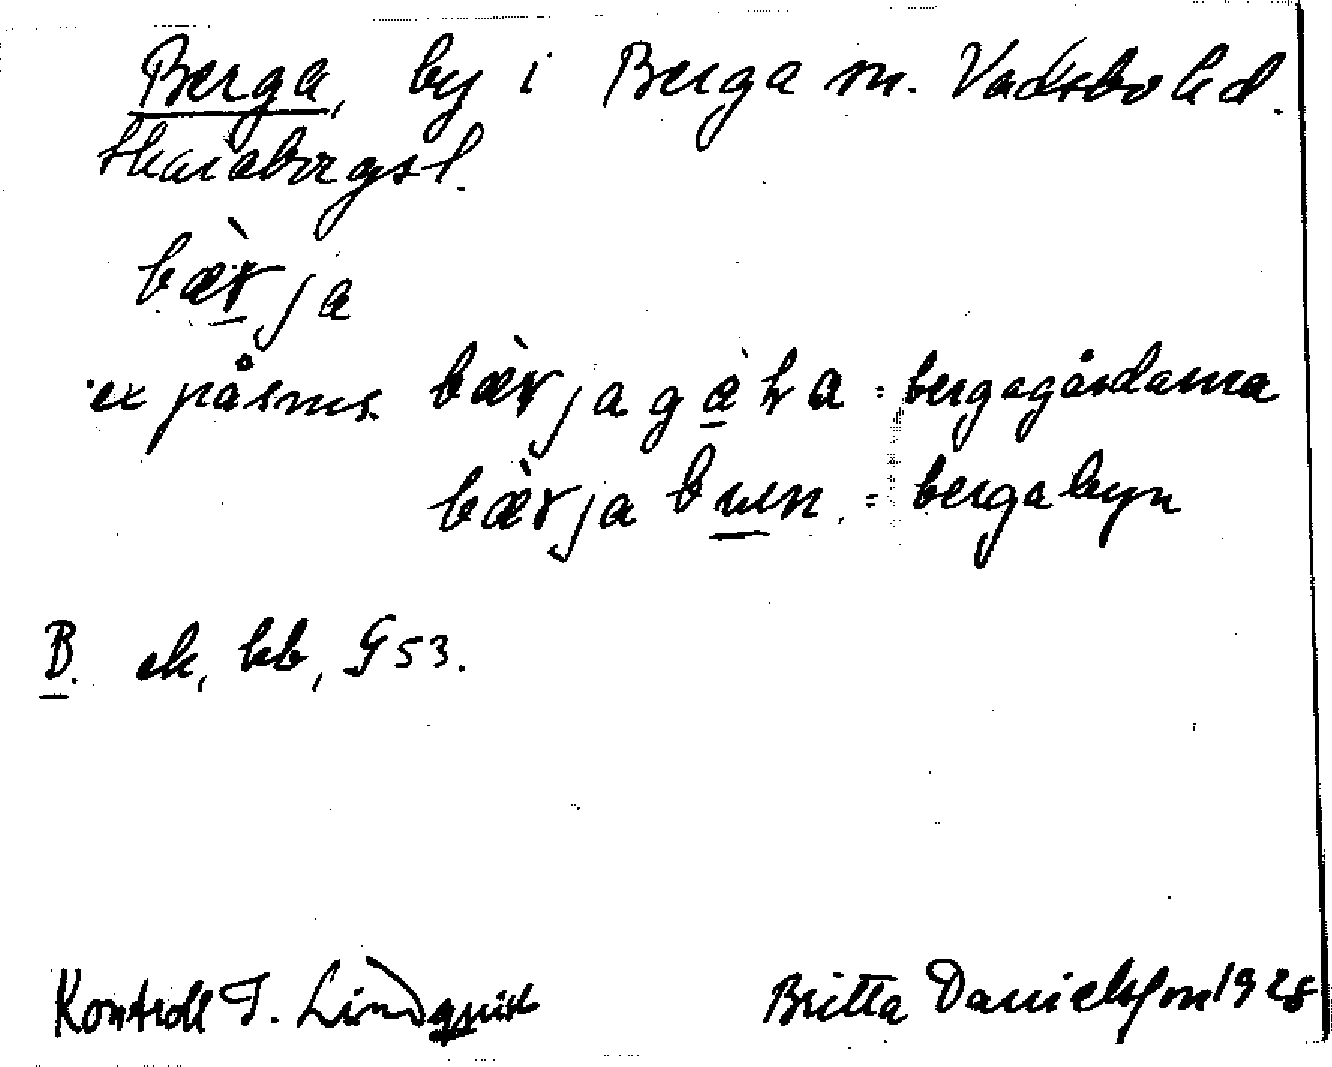 Berga, by i Berga sn. Vadsbo hd.
Skaraborgs l.
bæ̀rja
ex på sms. bæ̀rjagàra = bergagårdarna
bæ̀rja = bergabyn
B. ek, kb, G 53.
Kontroll T. Lindquist
Britta Danielsson 1928